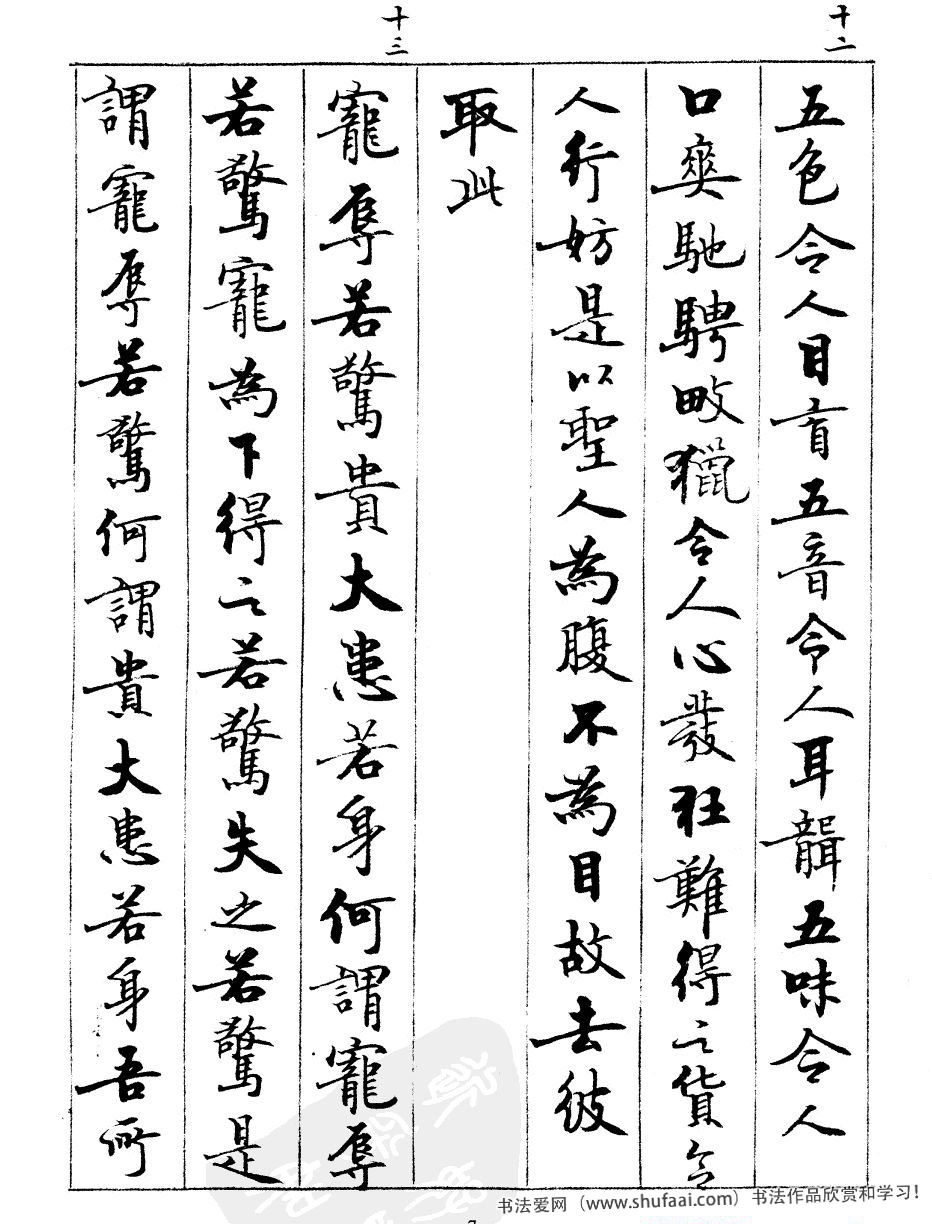 十二
五色令人目盲五音令人耳聾五味令人
口爽馳騁畋獵令人心發狂難得之貨令
人行妨是以聖人為腹不為目故去彼
取此
十三
寵辱若驚貴大患若身何謂寵辱
若驚寵為下得之若驚失之若驚是
謂寵辱若驚何謂貴大患若身吾所
书法爱网（www.shufaai.com）书法作品欣赏和学习！